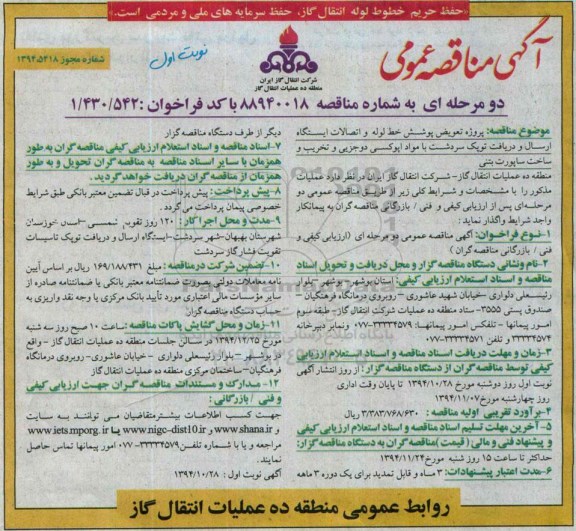 «حفظ حریم خطوط لوله انتقال گاز، حفظ سرمایه های ملی و مردمی است.»
آگهی مناقصه عمومی
شرکت انتقال گاز ایران
منطقه ده عملیات انتقال گاز
نوبت اول
شماره مجوز ۱۳۹۴،۵۴۱۸
دو مرحله ای به شماره مناقصه ۸۸۹۴۰۰۱۸ با کد فراخوان :۱/۴۳۰/۵۴۲
موضوع مناقصه: پروژه تعویض پوشش خط لوله و اتصالات ایستگاه
ارسال و دریافت توپک سردشت با مواد اپوکسی دوجزیی و تخریب و
ساخت ساپورت بتنی
منطقه ده عملیات انتقال گاز-شرکت انتقال گاز ایران در نظر دارد عملیات
مذکور را با مشخصات و شرایط کلی زیر از طریق مناقصه عمومی دو
مرحله‌ای پس از ارزیابی کیفی و فنی / بازرگانی مناقصه گران به پیمانکار
واجد شرایط واگذار نماید :
۱-نوع فراخوان: آگهی مناقصه عمومی دو مرحله ای (ارزیابی کیفی و
فنی / بازرگانی مناقصه گران)
۲-نام ونشانی دستگاه مناقصه گزار و محل دریافت و تحویل اسناد
مناقصه و اسناد استعلام ارزیابی کیفی: استان بوشهر -بوشهر -بلوار
رئیسعلی دلواری -خیابان شهید عاشوری - روبروی درمانگاه فرهنگیان -
صندوق پستی ۳۵۵۵- ستاد منطقه ده عملیات انتقال گاز- طبقه سوم
امور پیمانها -تلفکس امور پیمانها: ۳۳۳۳۴۵۷۹-۰۷۷ ونمابر دبیرخانه
۳۳۳۳۴۵۷۴ و تلفن ۳۳۳۳۴۵۷۱-۰۷۷
۳-زمان و مهلت دریافت اسناد مناقصه و اسناد استعلام ارزیابی
کیفی توسط مناقصه گران از دستگاه مناقصه گزار: از روز انتشار آگهی
نوبت اول روز دوشنبه مورخ ۱۳۹۴/۱۰/۲۸ تا پایان وقت اداری
روز چهارشنبه مورخ ۱۳۹۴/۱۱/۰۷
۴-برآورد تقریبی اولیه مناقصه : ۳/۳۸۳/۷۶۸/۶۳۰ ریال
۵-آخرین مهلت تسلیم اسناد مناقصه و اسناد استعلام ارزیابی کیفی
و پیشنهاد فنی و مالی (قیمت)مناقصه گران به دستگاه مناقصه گزار:
حداکثر تا ساعت ۱۵ روز شنبه مورخ ۱۳۹۴/۱۱/۲۴
۶-مدت اعتبار پیشنهادات: ۳ ماه و قابل تمدید برای یک دوره ۳ ماهه
دیگر از طرف دستگاه مناقصه گزار
۷-اسناد مناقصه و اسناد استعلام ارزیابی کیفی مناقصه گران به طور
همزمان با سایر اسناد مناقصه به مناقصه گران تحویل و به طور
همزمان از مناقصه گران دریافت خواهد گردید.
۸- پیش پرداخت: پیش پرداخت در قبال تضمین معتبر بانکی طبق شرایط
خصوصی پیمان پرداخت می گردد.
۹-مدت و محل اجرا کار : ۱۲۰ روز تقویم شمسی -استان خوزستان
شهرستان بهبهان-شهر سردشت-ایستگاه ارسال و دریافت توپک تاسیسات
تقویت فشار گاز سردشت
۱۰-تضمین شرکت در مناقصه: مبلغ ۱۶۹/۱۸۸/۴۳۱ ریال بر اساس آیین
نامه معاملات دولتی به صورت ضمانتنامه معتبر بانکی یا ضمانتنامه صادره از
سایر مؤسسات مالی اعتباری مورد تأیید بانک مرکزی یا وجه نقد واریزی به
حساب دستگاه مناقصه گزار
۱۱- زمان و محل گشایش پاکات مناقصه: ساعت ۱۰ صبح روز سه شنبه
مورخ ۱۳۹۴/۱۲/۲۵ در سالن جلسات منطقه ده عملیات انتقال گاز- واقع
در بوشهر - بلوار رئیسعلی دلواری - خیابان عاشوری- روبروی درمانگاه
فرهنگیان-ساختمان مرکزی منطقه ده عملیات انتقال گاز
۱۲- مدارک و مستندات مناقصه گران جهت ارزیابی کیفی
و فنی / بازرگانی:
جهت کسب اطلاعات بیشتر متقاضیان می توانند به سایت
www.shana.ir و www.nigc-dist10.ir یا www.iets.mporg.ir
مراجعه و یا با شماره تلفن ۳۳۳۳۴۵۷۹-۰۷۷ امور پیمانها تماس حاصل
نمایند.
آگهی نوبت اول : ۱۳۹۴/۱۰/۲۸
روابط عمومی منطقه ده عملیات انتقال گاز